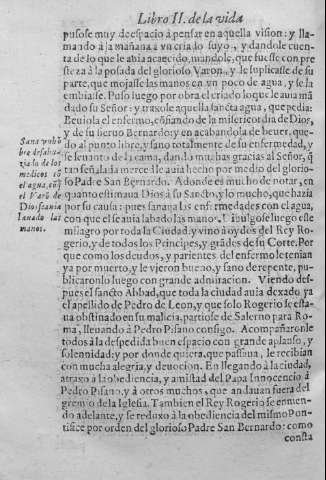 Libro II. de la vida
pusose muy de espacio à pensar en aquella vision: y lla-
mando à la mañana à vn criado suyo, y dandole cuen-
ta de lo que le auia acaecido, mandole, que fuesse con pre-
steza à la posada del glorioso Varon, y le suplicasse de su
parte, que mojasse las manos en vn poco de agua, y se la
embiasse. Puso luego por obra el criado lo que le auia mã-
dado su Señor: y traxole aquella sancta agua, que pedia:
Beuiola el enfermo, cõfiando de la misericordia de Dios,
y de su sieruo Bernardo: y en acabandola de beuer, que-
dò al punto libre, y sano totalmente de su enfermedad, y
se leuanto de la cama, dando muchas gracias al Señor, q̃
tan señalada merced le auia hecho por medio del glorio-
so Padre San Bernardo. Adonde es mucho de notar, en
quanto estimaua Dios à su Sancto, y lo mucho, que hazia
por su causa: pues sanaua las enfermedades con el agua,
con que el se auia labado las manos. Diuulgose luego este
milagro por toda la Ciudad: y vino à oydos del Rey Ro-
gerio, y de todos los Principes, y grãdes de su Corte. Por
que como los deudos, y parientes del enfermo le tenian
ya por muerto, y le vieron bueno, y sano de repente, pu-
blicaronlo luego con grande admiracion. Viendo des-
pues el sancto Abbad, que toda la ciudad auia dexado ya
el apellido de Pedro de Leon, y que solo Rogerio se esta-
ua obstinado en su malicia, partiose de Salerno para Ro-
ma, lleuando à Pedro Pisano consigo. Acompañaronle
todos à la despedida buen espacio con grande aplauso, y
solennidad: y por donde quiera, que passaua, le recibian
con mucha alegria, y deuocion. En llegando à la ciudad,
atraxo à la obediencia, y amistad del Papa Innocencio à
Pedro Pisano, y à otros muchos, que andauan fuera del
gremio de la Iglesia. Tambien el Rey Rogerio se enmen-
dò adelante, y se reduxo à la obediencia del mismo Pon-
tifice por orden del glorioso Padre San Bernardo: como
consta
Sana vn hõ
bre desahu-
ziado de los
medicos cõ
el agua, cõq̃
el Varõ de
Dios se auia
lauado las
manos.